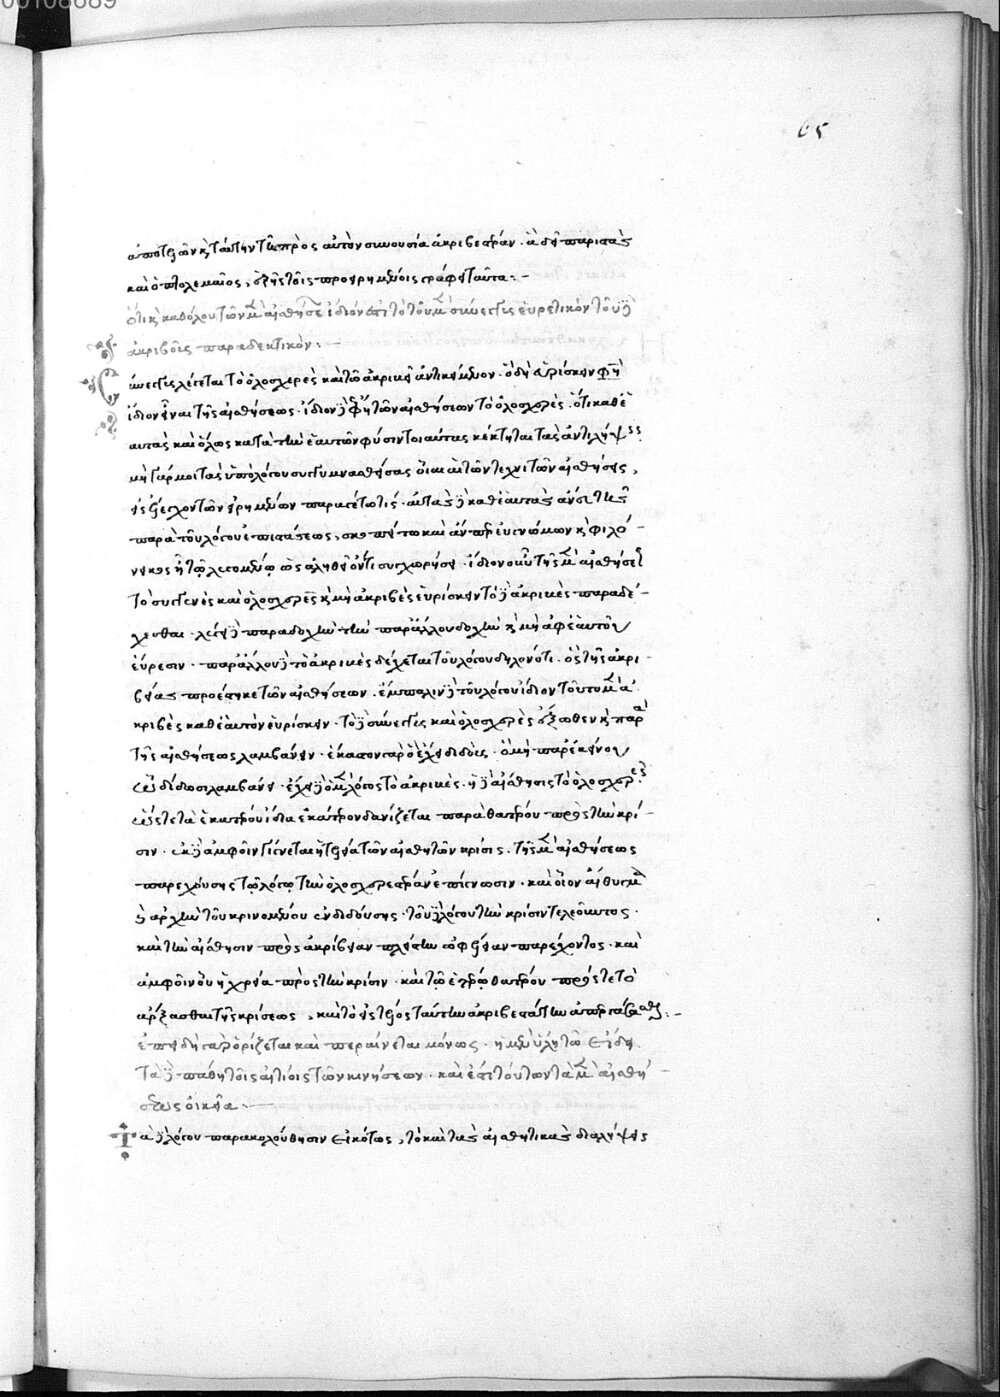 ἀποτελῶν καὶ ταύτην τῇ πρὸς αὐτὸν συνουσία ἀκριβεστέραν · ἃ δὴ παριστὰς
καὶ ὁ πτολεμαῖος, ἑξῆς τοῖς προειρημένοις γράφει ταῦτα :-
ὅτι καὶ καθόλου τῶν μὲν αἰσθήσεων ἴδιον ἐστι τὸ τοῦ μὲν σύνεγγις εὑρετικὸν τοῦ δὲ
ἀκριβοῦς παραδεκτικόν :-
Σύνεγγις λέγεται τὸ ὁλοσχερὲς καὶ τῶ ἀκριβεῖ ἀντικείμενον · ὃ δὴ εὑρίσκειν φησὶν
ἴδιον εἶναι τῆς αἰσθήσεως · ἴδιον δὲ εἶναι τῶν αἰσθήσεων τὸ ὁλοσχερὲς · ὅτι καθ' ἑ
αυτὰς καὶ ὅλως κατὰ τὴν ἑαυτῶν φύσιν τοιαύτας κέκτηται τὰς ἀντιλήψεις
μὴ γάρ μοι τὰς ὑπὸ λόγου συγγυμνασθείσας οἷαι αἱ τῶν τεχνιτῶν αἰσθήσεις,
εἰς ἔλεγχον τῶν εἰρημένων παραγέτω τίς · αὐτὰς δὲ καθ' ἑαυτὰς ἄνευ τῆς
παρὰ τοῦ λόγου ἐπιστάσεως, σκοπείτω καὶ ἄνπερ εὐγνώμων καὶ φιλό-
νεικος ἢ τῶ λεγομένω ὡς ἀληθεῖ ὄντι συγχωρήσει · ἴδιον οὖν τῆς μὲν αἰσθήσεως
τὸ συγγενὲς καὶ ὁλοσχερὲς καὶ μὴ ἀκριβὲς εὑρίσκειν τὸ δὲ ἀκριβὲς παραδέ-
χεσθαι · λέγει δὲ παραδοχὴν τὴν παρ' ἄλλου δοχὴν καὶ μὴ ἀφ' ἑαυτοῦ
εὕρεσιν · παρ' ἄλλου δὲ τὸ ἀκριβὲς δέχεται τοῦ λόγου δηλονότι · ὃς τῆς ἀκρι-
βείας προέστηκε τῶν αἰσθήσεων · ἔμπαλιν δὲ τοῦ λόγου ἴδιον τοῦτο μὲν ἀ
κριβὲς καθ' ἑαυτὸν εὑρίσκειν · τὸ δὲ σύνεγγις καὶ ὁλοσχερὲς ἔξωθεν καὶ παρὰ
τῆς αἰσθήσεως λαμβάνειν · ἑκάτερον γὰρ ὃ ἔχει δίδωσι · ὃ μὴ παρ' ἐκείνου
ἐνδίδωσι λαμβάνει · ἔχει δὲ ὁ μὲν λόγος τὸ ἀκριβὲς · ἡ δὲ αἴσθησις τὸ ὁλοσχερὲς
ὥστε τὰ ἑκατέρου ἴδια ἑκάτερον δανίζεται παρὰ θατέρου πρὸς τὴν κρί-
σιν · ἐκ δὲ ἀμφοῖν γίγνεται ἡ τελεία τῶν αἰσθητῶν κρίσις · τῆς μὲν αἰσθήσεως
παρεχούσης τῶ λόγω τὴν ὁλοσχερεστέραν ἐπίγνωσιν · καὶ οἷον αἴθυγμα
ἢ ἀρχὴν τοῦ κρινομένου ἐνδιδούσης · τοῦ δὲ λόγου τὴν κρίσιν τελεοῦντος ·
καὶ τὴν αἴσθησιν πρὸς ἀκρίβειαν πλείστην ὠφέλειαν παρέχοντος · καὶ
ἀμφοῖν οὖν ἡ χρεία πρὸς τὴν κρίσιν · καὶ τῶ ἑτέρω θατέρου πρός τε τὸ
ἄρξασθαι τῆς κρίσεως, καὶ τὸ εἰς τέλος ταύτην ἀκριβεστάτην ἀπεργάσασθαι :-
ἐπειδὴ γὰρ ὁρίζεται καὶ περαίνεται μόνως · ἡ μὲν ὕλη τῶ εἴδει
τὰ δὲ πάθη τοῖς αἰτίοις τῶν κινήσεων · καὶ ἐστὶ τούτων τὰ μὲν αἰσθή-
σεως οἰκεῖα ·-
Τὰ δὲ λόγου παρακολούθησιν εἰκότως, τὸ καὶ τὰς αἰσθητικὰς διαλήψεις